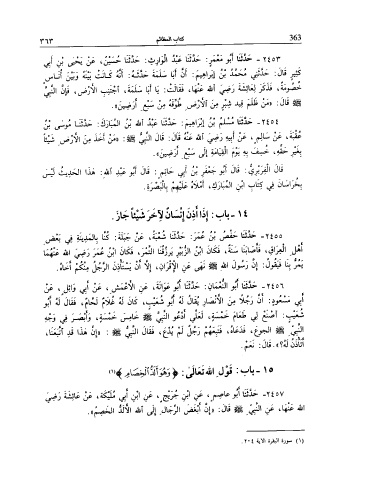 363 كتاب المظالم ٣٦٣
٢٤٥٣ - حَدَّثَنَا أَبُو مَعْمَرٍ: حَدَّثَنَا عَبْدُ الْوَارِثِ: حَدَّثَنَا حُسَيْنٌ، عَنْ يَحْيَى بْنِ أَبِي
كَثِيرٍ قَالَ: حَدَّثَنِي مُحَمَّدُ بْنُ إِبْرَاهِيمَ: أَنَّ أَبَا سَلَمَةَ حَدَّثَهُ: أَنَّهُ كَانَتْ بَيْنَهُ وَبَيْنَ أُنَاسٍ
خُصُومَةٌ، فَذَكَرَ لِعَائِشَةَ رَضِيَ اللهُ عَنْهَا، فَقَالَتْ: يَا أَبَا سَلَمَةَ، اجْتَنِبِ الْأَرْضَ، فَإِنَّ النَّبِيَّ
ﷺ قَالَ: «مَنْ ظَلَمَ قِيدَ شِبْرٍ مِنَ الْأَرْضِ طُوِّقَهُ مِنْ سَبْعِ أَرَضِينَ».
٢٤٥٤ - حَدَّثَنَا مُسْلِمُ بْنُ إِبْرَاهِيمَ: حَدَّثَنَا عَبْدُ اللهِ بْنُ الْمُبَارَكِ: حَدَّثَنَا مُوسَى بْنُ
عُقْبَةَ، عَنْ سَالِمٍ، عَنْ أَبِيهِ رَضِيَ اللهُ عَنْهُ قَالَ: قَالَ النَّبِيُّ ﷺ: «مَنْ أَخَذَ مِنَ الْأَرْضِ شَيْئاً
بِغَيْرِ حَقِّهِ، خُسِفَ بِهِ يَوْمَ الْقِيَامَةِ إِلَى سَبْعِ أَرَضِينَ».
قَالَ الْفِرَبْرِيُّ: قَالَ أَبُو جَعْفَرِ بْنُ أَبِي حَاتِمٍ: قَالَ أَبُو عَبْدِ اللهِ: هَذَا الْحَدِيثُ لَيْسَ
بِخُرَاسَانَ فِي كِتَابِ ابْنِ الْمُبَارَكِ، أَمْلَاهُ عَلَيْهِمْ بِالْبَصْرَةِ.
١٤ - باب: إِذَا أَذِنَ إِنْسَانٌ لِآخَرَ شَيْئاً جَازَ.
٢٤٥٥ - حَدَّثَنَا حَفْصُ بْنُ عُمَرَ: حَدَّثَنَا شُعْبَةُ، عَنْ جَبَلَةَ: كُنَّا بِالْمَدِينَةِ فِي بَعْضِ
أَهْلِ الْعِرَاقِ، فَأَصَابَنَا سَنَةٌ، فَكَانَ ابْنُ الزُّبَيْرِ يَرْزُقُنَا التَّمْرَ، فَكَانَ ابْنُ عُمَرَ رَضِيَ اللهُ عَنْهُمَا
يَمُرُّ بِنَا فَيَقُولُ: إِنَّ رَسُولَ اللهِ ﷺ نَهَى عَنِ الْإِقْرَانِ، إِلَّا أَنْ يَسْتَأْذِنَ الرَّجُلُ مِنْكُمْ أَخَاهُ.
٢٤٥٦ - حَدَّثَنَا أَبُو النُّعْمَانِ: حَدَّثَنَا أَبُو عَوَانَةَ، عَنِ الْأَعْمَشِ، عَنْ أَبِي وَائِلٍ، عَنْ
أَبِي مَسْعُودٍ: أَنَّ رَجُلًا مِنَ الْأَنْصَارِ يُقَالُ لَهُ أَبُو شُعَيْبٍ، كَانَ لَهُ غُلَامٌ لَحَّامٌ، فَقَالَ لَهُ أَبُو
شُعَيْبٍ: اصْنَعْ لِي طَعَامَ خَمْسَةٍ، لَعَلِّي أَدْعُو النَّبِيَّ ﷺ خَامِسَ خَمْسَةٍ، وَأَبْصَرَ فِي وَجْهِ
النَّبِيِّ ﷺ الْجُوعَ، فَدَعَاهُ، فَتَبِعَهُمْ رَجُلٌ لَمْ يُدْعَ، فَقَالَ النَّبِيُّ ﷺ: «إِنَّ هَذَا قَدِ اتَّبَعَنَا،
أَتَأْذَنُ لَهُ؟». قَالَ: نَعَمْ.
١٥ - باب: قَوْلِ اللهِ تَعَالَى: ﴿وَهُوَ أَلَدُّ الْخِصَامِ﴾ (١)
٢٤٥٧ - حَدَّثَنَا أَبُو عَاصِمٍ، عَنِ ابْنِ جُرَيْجٍ، عَنِ ابْنِ أَبِي مُلَيْكَةَ، عَنْ عَائِشَةَ رَضِيَ
اللهُ عَنْهَا، عَنِ النَّبِيِّ ﷺ قَالَ: «إِنَّ أَبْغَضَ الرِّجَالِ إِلَى اللهِ الْأَلَدُّ الْخَصِمُ».
(١) سورة البقرة الآية ٢٠٤.